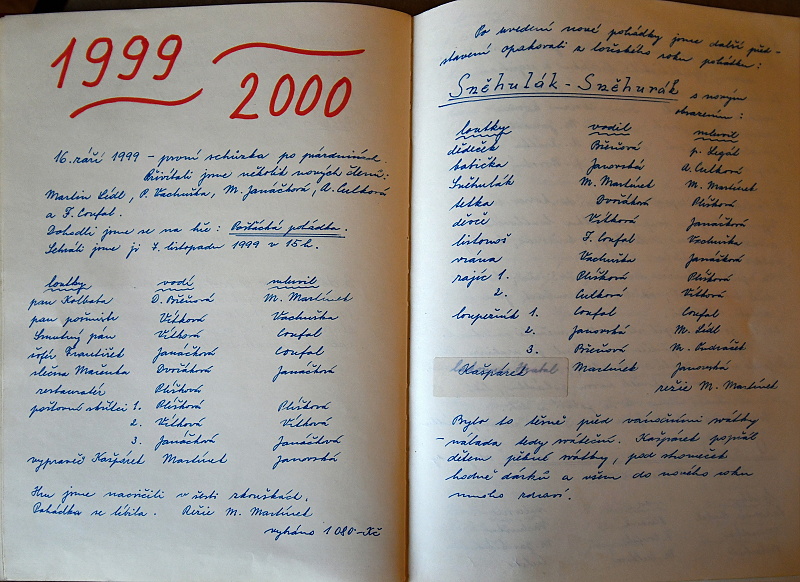 1999
2000
16. září 1999 – první schůzka po prázdninách.
Přivítali jsme několik nových členů:
Martin Lídl, P. Vachuška, M. Janáčková, A. Culková
a J. Coufal.
Dohodli jsme se na hře: Pošťácká pohádka.
Sehráli jsme ji 7. listopadu 1999 v 15 h.
loutky vodí mluvil
pan Kolbaba O. Břeňová M. Martínek
pan poštmistr Vítková Vachuška
Smutný pán Vítková Coufal
šofér František Janáčková Coufal
slečna Mařenka Dvořáková Janáčková
restauratér Plíšková
poštovní skřítci 1. Plíšková Plíšková
2. Vítková Vítková
3. Janáčková Janáčková
vypravěč Kašpárek Martínek Janovská
Hru jsme nacvičili v šesti zkouškách.
Pohádka se líbila. Režie M. Martínek
vybráno 1 080.-Kč
Po uvedení nové pohádky jsme další před-
stavení opakovali z loňského roku pohádku:
Sněhulák - Sněhurák s novým
obsazením:
loutky vodil mluvil
dědeček Břeňová p. Legát
babička Janovská A. Culková
Sněhulák M. Martínek M. Martínek
tetka Dvořáková Plíšková
děvče Vítková Janáčková
listonoš J. Coufal Vachuška
vrána Vachuška Janáčková
zajíc 1. Plíšková Plíšková
2. Culková Vítková
loupežník 1. Coufal Coufal
2. Janovská M. Lídl
3. Břeňová M. Ondráček
Kašpárek Martínek Janovská
režie M. Martínek
Bylo to těsně před vánočními svátky
– nálada tedy sváteční. Kašpárek popřál
dětem pěkné svátky, pod stromeček
hodně dárků a všem do nového roku
mnoho zdraví.